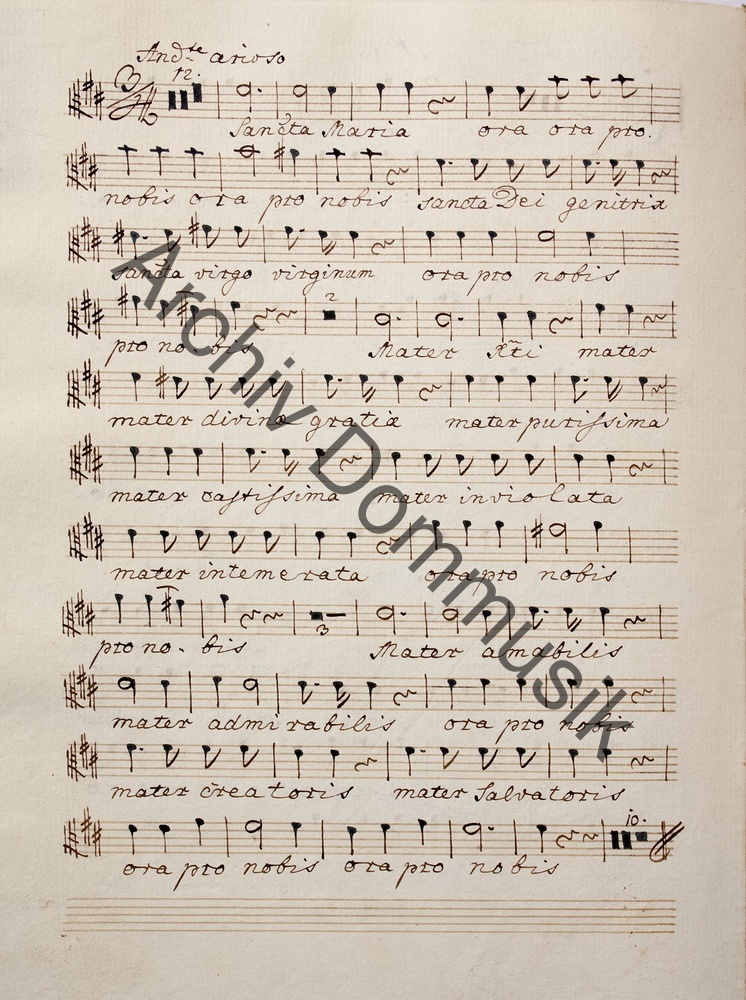 And.te arioso
12.
Sancta Maria ora ora pro.
nobis ora pro nobis sancta Dei genitrix
sancta virgo virginum ora pro nobis
2
pro nobis Mater Xti mater
mater divinæ gratiæ mater purissima
mater castissima mater inviolata
mater intemerata ora pro nobis
3
pro no. bis Mater amabilis
mater admirabilis ora pro nobis
mater creatoris mater Salvatoris
10.
ora pro nobis ora pro nobis
Archiv Dommusik